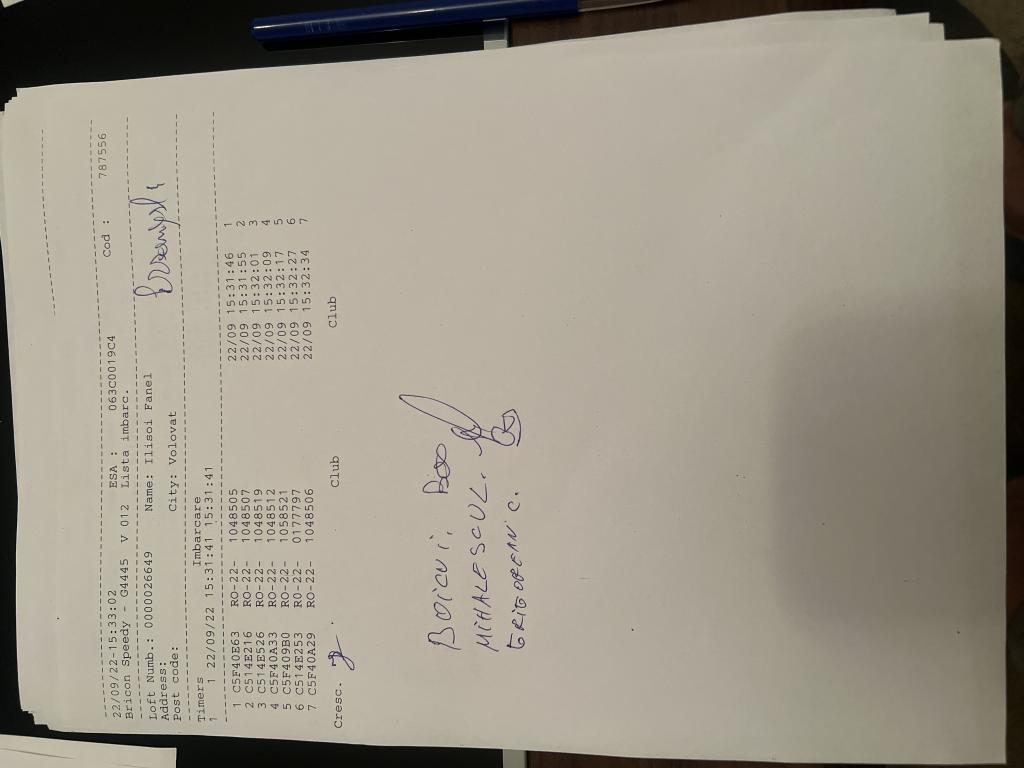 22/09/22-15:33:02 ESA : 063C0019C4 Cod : 787556
Bricon Speedy - G4445 V 012 Lista imbarc.
Loft Numb.: 0000026649 Name: Ilisoi Fanel
Address:
Post code: City: Volovat
Timers Imbarcare
1 1 22/09/22 15:31:41 15:31:41
1 C5F40E63 RO-22- 1048505 22/09 15:31:46 1
2 C514E216 RO-22- 1048507 22/09 15:31:55 2
3 C514E526 RO-22- 1048519 22/09 15:32:01 3
4 C5F40A33 RO-22- 1048512 22/09 15:32:09 4
5 C5F409B0 RO-22- 1058521 22/09 15:32:17 5
6 C514E253 RO-22- 0177797 22/09 15:32:27 6
7 C5F40A29 RO-22- 1048506 22/09 15:32:34 7
Cresc. Club Club
BOICU i.
MIHALESCUL.
GRIGOREAN C.